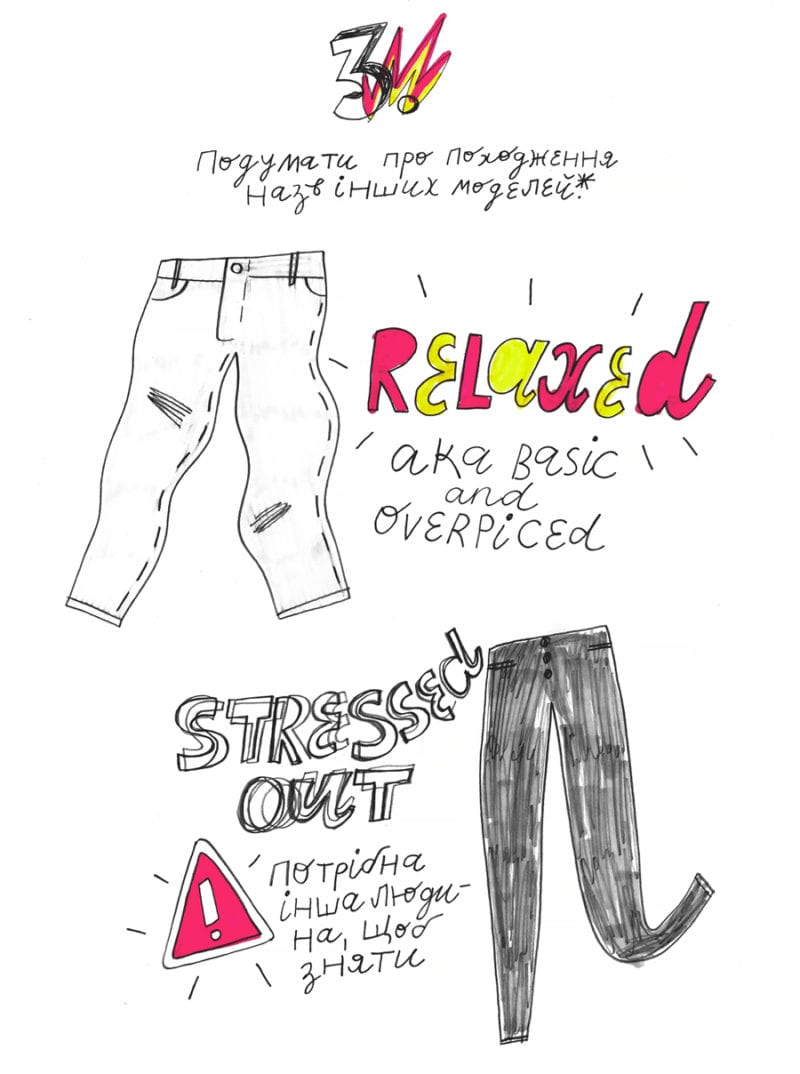 3м.
Подумати про походження
назв інших моделей.*
RELaxed
aka Basic
and
OVERPICED
STRESSEd
OUT
!
потрібна
інша люди-
на, щоб
зняти